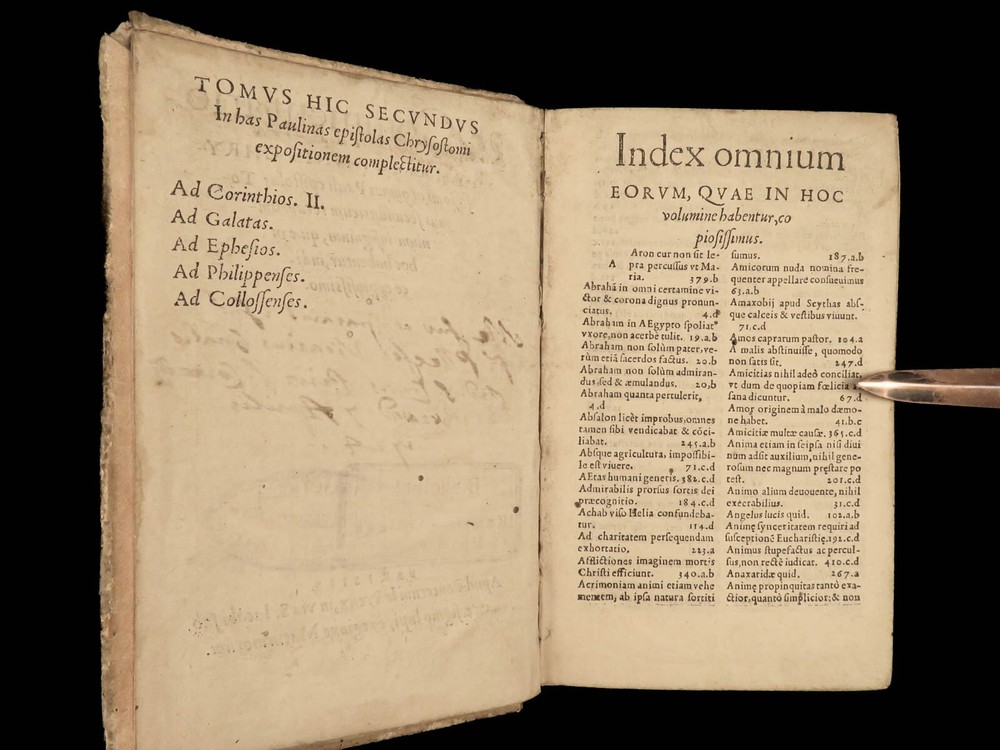 TOMVS HIC SECVNDVS
In has Paulinas epistolas Chrysostomi
expositionem complectitur.
Ad Corinthios. II.
Ad Galatas.
Ad Ephesios.
Ad Philippenses.
Ad Collossenses.
Index omnium
EORVM, QVAE IN HOC
volumine habentur,co
piosissimus.
Aron cur non sit le-
A pra percussus vt Ma-
ria. 379.b
Abrahã in omni certamine vi-
ctor & corona dignus pronun-
ciatus. 4.d
Abraham in AEgypto spoliat9
vxore,non acerbè tulit. 19.a.b
Abraham non solùm pater,ve-
rùm etiã sacerdos factus. 20.b
Abraham non solùm admiran-
dus,sed & æmulandus. 20,b
Abraham quanta pertulerit,
4.d
Absalon licèt improbus,omnes
tamen sibi vendicabat & cõci-
liabat. 245.a.b
Absque agricultura, impossibi-
le est viuere. 71.c.d
AEtas humani generis. 382.c.d
Admirabilis prorsus fortis dei
præcognitio. 184.c.d
Achab viso Helia confundeba-
tur. 114.d
Ad charitatem persequendam
exhortatio. 223.a
Afflictiones imaginem mortis
Christi efficiunt. 340.a.b
Acrimoniam animi etiam vehe
mentem, ab ipsa natura sortiti
sumus. 187.a.b
Amicorum nuda nomina fre-
quenter appellare consueuimus
63.a.b
Amaxobij apud Scythas abs-
que calceis & vestibus viuunt.
71.c.d
Amos caprarum pastor. 104.a
A malis abstinuisse, quomodo
non satis sit. 247.d
Amicitias nihil adeò conciliat,
vt dum de quopiam fœlicia
sana dicuntur. 67.d
Amor originem à malo dæmo-
ne habet. 41.b.c
Amicitiæ multæ causæ. 365.c.d
Anima etiam in seipsa nisi diui
num adsit auxilium,nihil gene-
rosum nec magnum præstare po
test. 201.c.d
Animo alium deuouente, nihil
execrabilius. 31.c.d
Angelus lucis quid. 102.a.b
Animę synceritatem requiri ad
susceptionẽ Eucharistię.192.c.d
Animus stupefactus ac percul-
sus,non rectè iudicat. 410.c.d
Anaxaridæ quid. 267.a
Animę propinquitas tantò exa-
ctior,quantò simplicior:& non